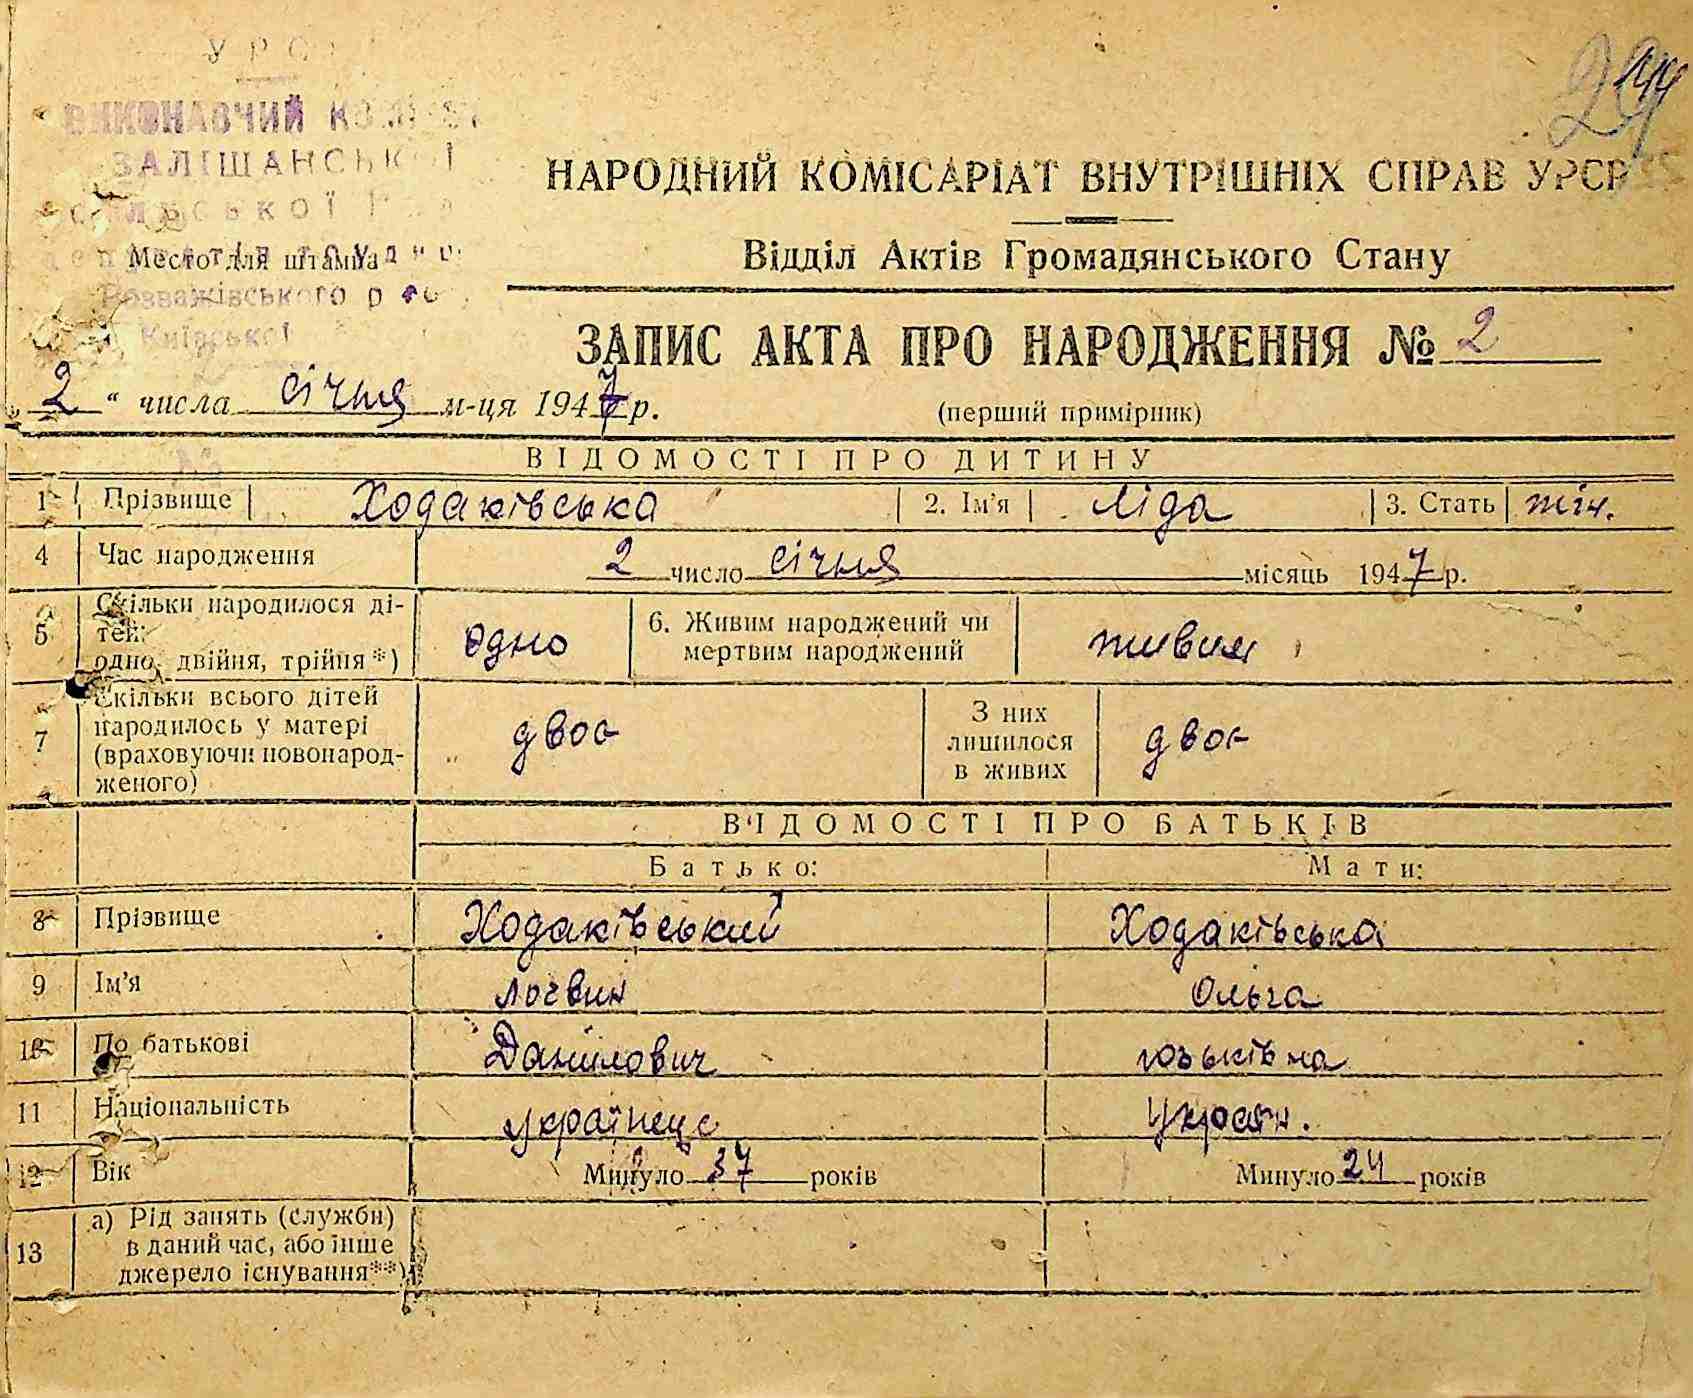 УРС
ВИКОНАВЧИЙ
ЗАЛІШАНСЬКОЇ
Место для штампа
Розважівського
Київської
244
НАРОДНИЙ КОМІСАРІАТ ВНУТРІШНІХ СПРАВ УРСР
Відділ Актів Громадянського Стану
ЗАПИС АКТА ПРО НАРОДЖЕННЯ № 2
„ 2 “ числа січня м-ця 1947 р. (перший примірник)
ВІДОМОСТІ ПРО ДИТИНУ
1 Прізвище Ходаківська 2. Ім'я Ліда 3. Стать жін.
4 Час народження 2 число січня місяць 1947 р.
5 Скільки народилося ді-
тей:
одно, двійня, трійня*) одно 6. Живим народжений чи
мертвим народжений живим
7 Скільки всього дітей
народилось у матері
(враховуючи новонарод-
женого) двоє З них
лишилося
в живих двоє
ВІДОМОСТІ ПРО БАТЬКІВ
Батько: Мати:
8 Прізвище Ходаківський Ходаківська
9 Ім'я Логвин Ольга
10 По батькові Данилович Юзьківна
11 Національність українець україн.
12 Вік Минуло 37 років Минуло 24 років
13 а) Рід занять (служби)
в даний час, або інше
джерело існування**)